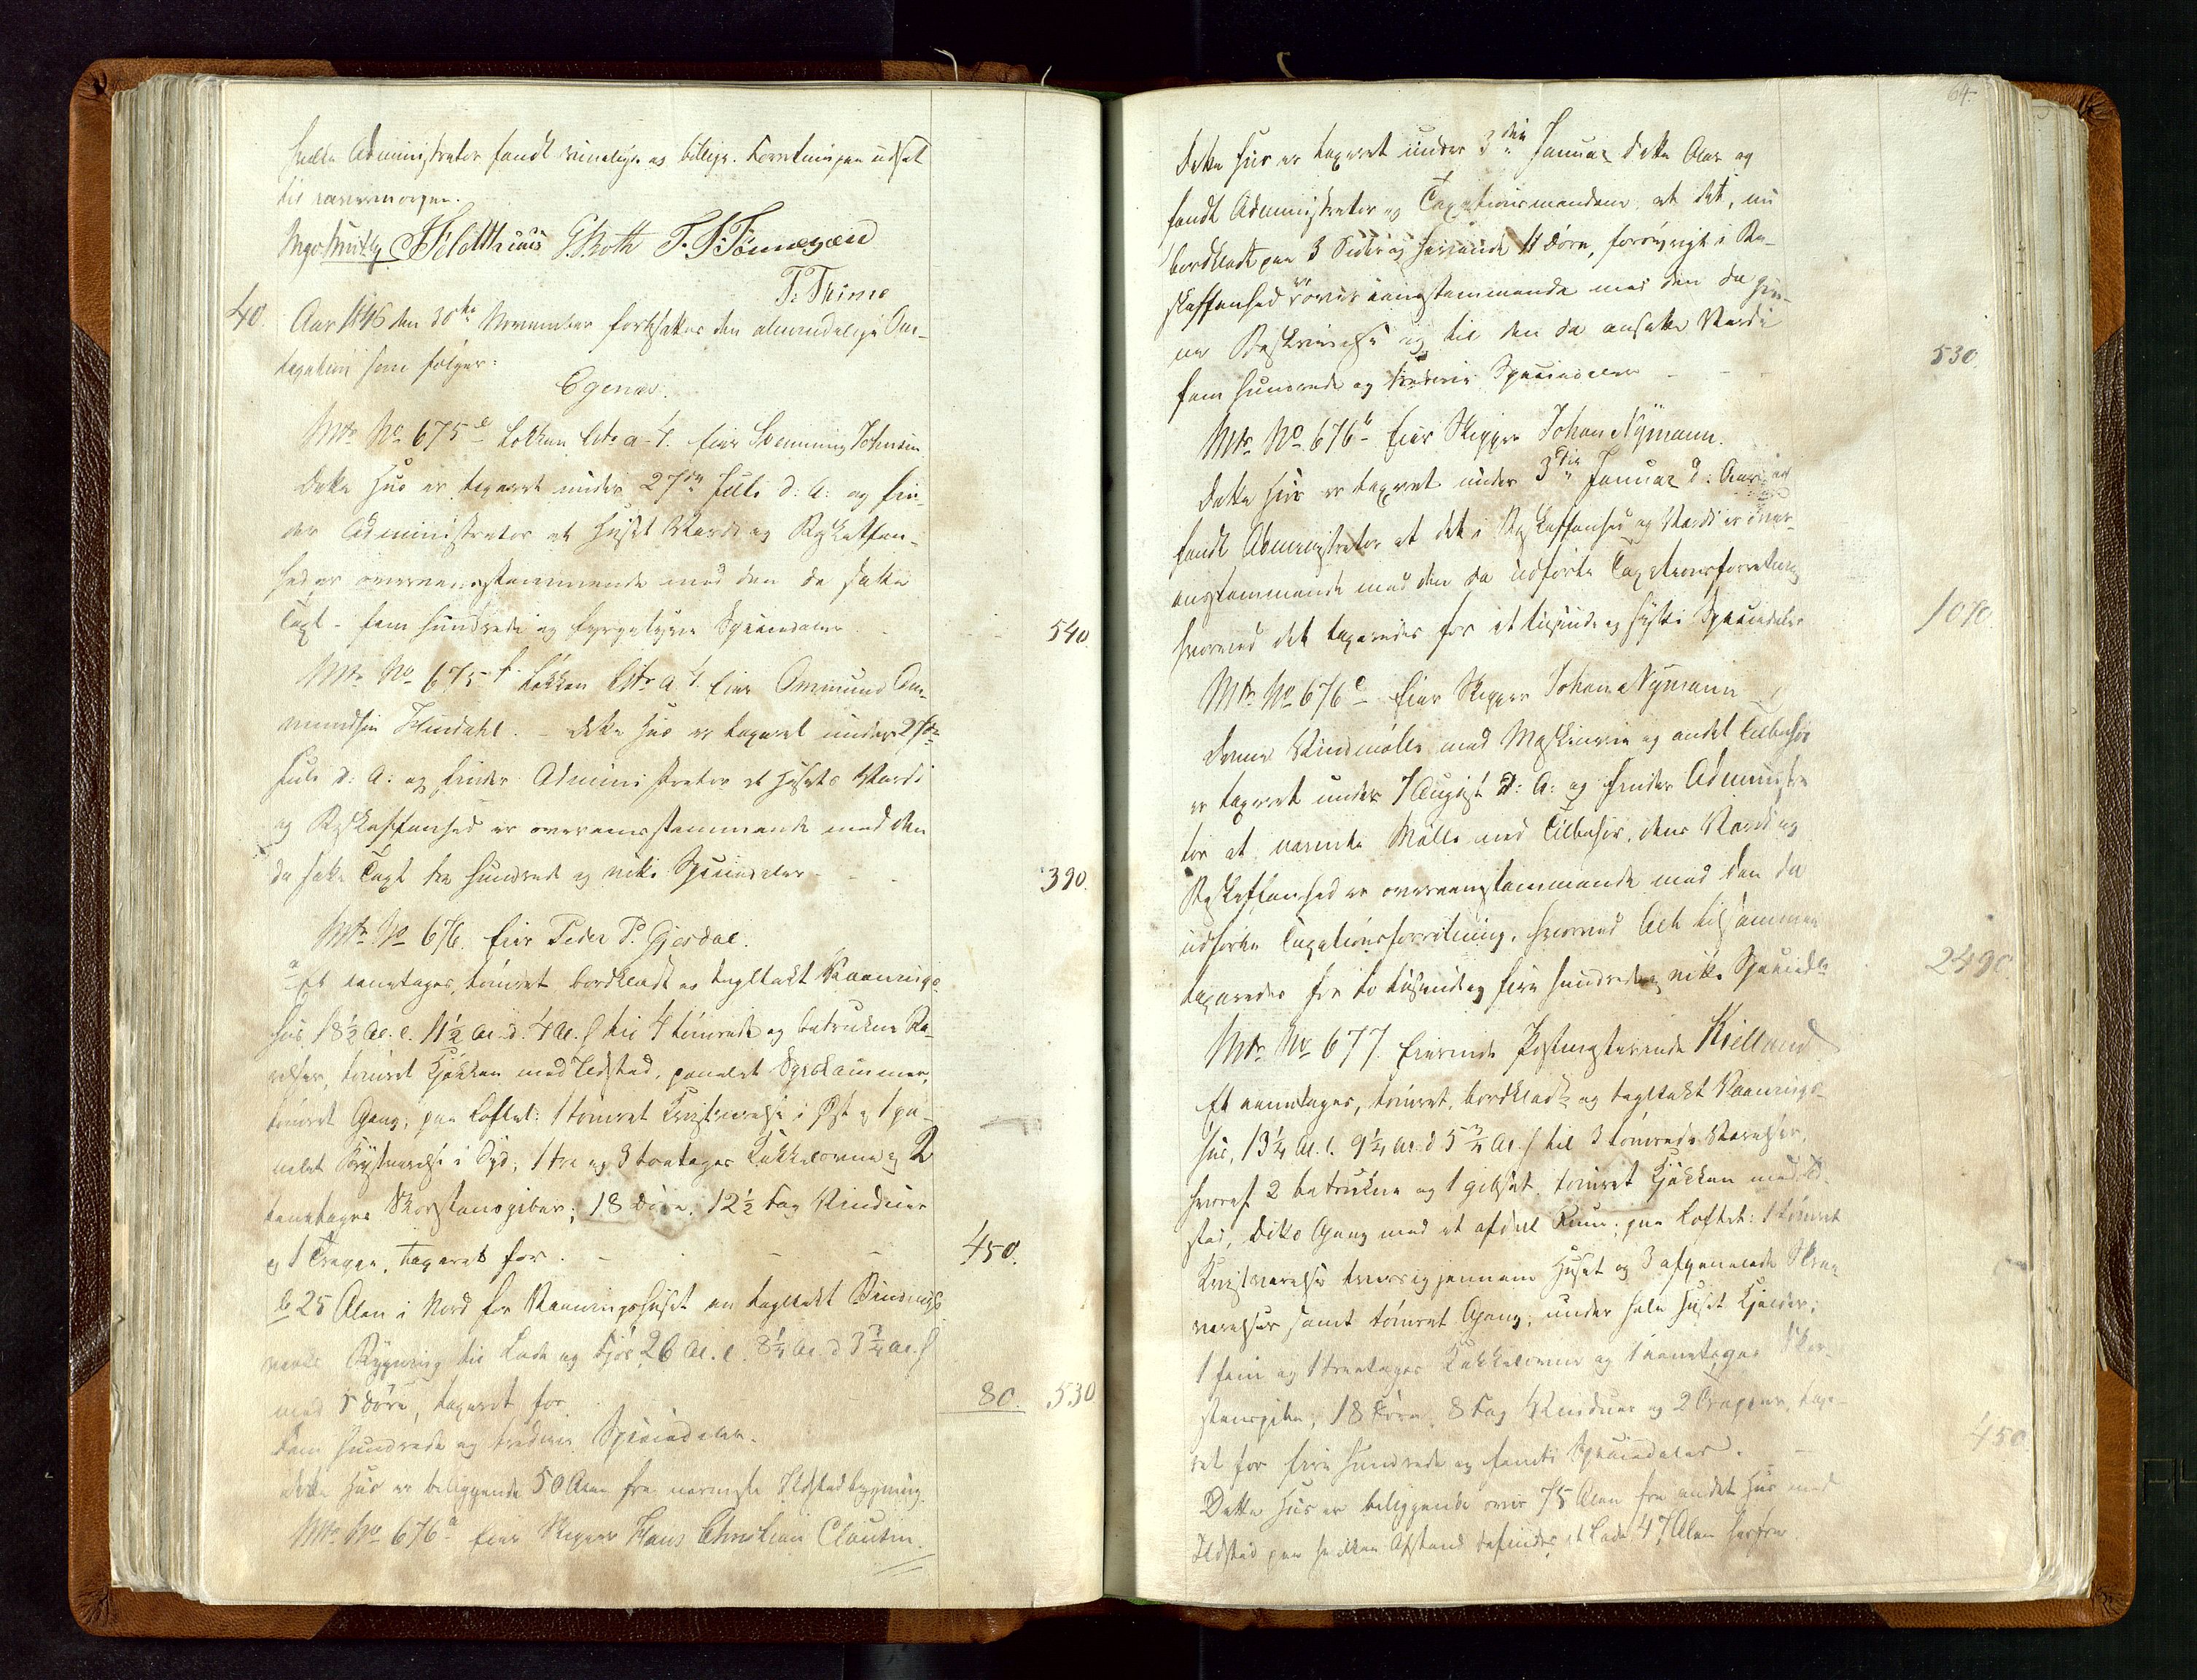 hvilke Administrator fandt rimelige og billige. Forretningen udsat
til overmorgen.
Feldthuus G. Roth T. T. Tönnesen
T. Thime
40. Aar 1846 den 30te November fortsattes den almindelige Om-
taxation som følger:
Egenæs.
Mtr No 675e Løkken Litr a-4. Eier Svenning Johnsen
Dette Huus er taxeret under 27de Juli d: A: og fin-
der Administrator at Huset Værdi og Beskaffen-
hed er overeensstemmende med den da satte
Taxt - fem hundrede og fyrgetyve Speciedaler - 540.
Mtr No 675f Løkken Litr a 4. Eier Ommund Om-
mundsen Windahl. - dette Huus er taxeret under 27de
Juli d: A: og finder Administrator at Husets Værdi
og Beskaffenhed er overeensstemmende med den
da satte Taxt tre hundrede og niti Speciedaler - 390.
Mtr No 676. Eier Peder P. Gjesdal.
a Et eenetages, tømret bordklædt og tagltækt Vaanings-
huus 18½ Al. l. 11½ Al. d. 4 Al. h til 4 tømrede og betrukne Væ-
relser, tømret Kjøkken med Ildsted, panelet Spiskammer,
tømret Gang; paa Loftet: 1 tømret Kvistværelse i Øst og 1 pa-
nelet Kvistværelse i Syd; 1 tre og 3 toetages Kakkelovne og 2
eenetages Skorsteenspiber; 18 Døre, 12½ Fag Vinduer
og 1 Trappe, taxeret for - 450.
b 25 Alen i Nord for Vaaningshuset en tagltækt Bindings-
værks Bygning til Lade og Fjøs 26 Al. l. 8¼ Al. d 3¾ Al. h
med 5 Døre, taxeret for 80. 530
Fem hundrede og tredive Speciedaler.
dette Huus er beliggende 50 Alen fra nærmeste Ildstedbygning.
Mtr No 676a Eier Skipper Hans Christian Clausen.
64.
Dette Huus er taxeret under 3die Januar dette Aar og
fandt Administrator og Taxationsmændene at det, nu
bordklædt paa 3 Sider og havende 11 Døre, forøvrigt i Be-
skaffenhed var overeensstemmende med den da giv-
ne Beskrivelse og til den da ansatte Værdi
fem hundrede og tredive Speciedaler - 530.
Mtr No 676b Eier Skipper Johan Nÿmann.
Dette Huus er taxeret under 3die Januar d: Aar og
fandt Administrator at det i Beskaffenhed og Værdi er over-
eensstemmende med den da udførte Taxationsforretning
hvorved det taxeredes for et tusinde og Speciedaler 1070.
Mtr No 676c Eier Skipper Johan Nÿmann
denne Vindmølle med Maskinerie og andet Tilbehør
er taxeret under 7 August d: A: og finder Administra-
tor at nævnte Mølle med Tilbehør, dens Værdi og
Beskaffenhed er overeensstemmende med den da
udførte Taxationsforretning, hvorved Alt tilsammen
taxeredes for to tusinde og fire hundrede og niti Speciedlr 2490.
Mtr No 677. Eierinde Postmesterinde Kielland
Et eenetages, tømret, bordklædt og tagltækt Vaanings-
huus, 13¼ Al. l. 9¼ Al. d 5¾ Al. h til 3 tømrede Værelser,
hvoraf 2 betrukne og 1 gibset, tømret Kjøkken med Ild-
sted, dito Gang med et afdeel Rum; paa Loftet: 1 tømret
Kvistværelse tvers igjennem Huset og 3 afpanelede Skraa-
værelser samt tømret Gang; under hele Huset Kjelder;
1 fem og 1 treetages Kakkelovne og 1 eenetages Skor-
steenspibe, 18 Døre, 8 Fag Vinduer og 2 Trapper, taxe-
ret for fire hundrede og femti Speciedaler. - 450
Dette Huus er beliggende over 75 Alen fra andet Huus med
Ildsted paa hvilken Afstand befindes et Lade 47 Alen herfra.